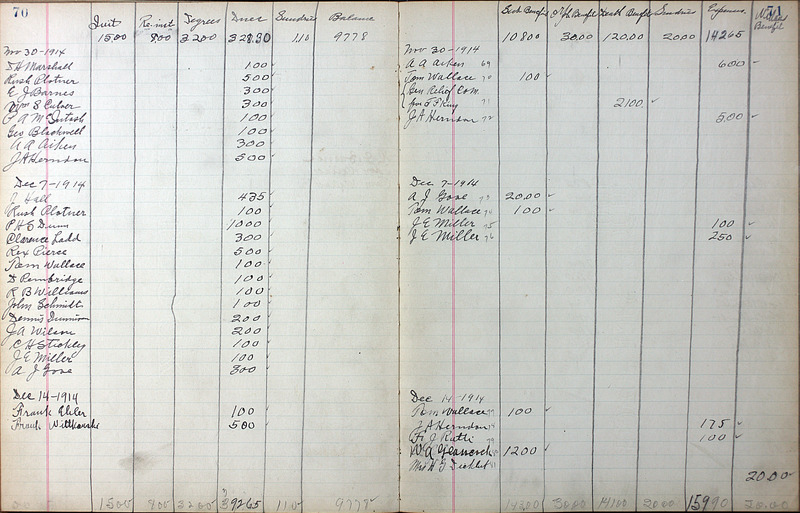 70
Init Re-inst Degrees Dues Sundries Balance
1500 800 3200 32830 110 9778
Nov 30-1914
Marshall 100
Rush Plotner 500
E J Barnes 300
Wm S Culver 300
P A McIntosh 100
Geo Blackwell 100
A A Aiken 300
J A Herndon 500
Dec 7-1914
J Hall 435
Rush Plotner 100
P H S Dunn 1000
Clarence Ladd 300
Rex Pierce 500
Tom Wallace 100
D Pembridge 100
R B Williams 100
John Schmidt 100
Dennis 200
J A Wilson 200
C H Stickley 100
J E Miller 100
A J Gove 300
Dec 14-1914
Frank 100
Frank 500
1500 800 3200 39265 110 9778
Sick Benefit Death Benefit Sundries Expenses Benefit
10800 3000 12000 2000 14265
Nov 30-1914
A A Aiken 69 600
Tom Wallace 70 100
Gen Relief Com
King 71 2100
J A Herndon 72 500
Dec 7-1914
A J Gove 73 2000
Tom Wallace 74 100
J E Miller 75 100
J E Miller 76 250
Dec 14-1914
Tom Wallace 77 100
J A Herndon 175
F J Rutti 79 100
1200
Mrs
2000
3000 2000 15990